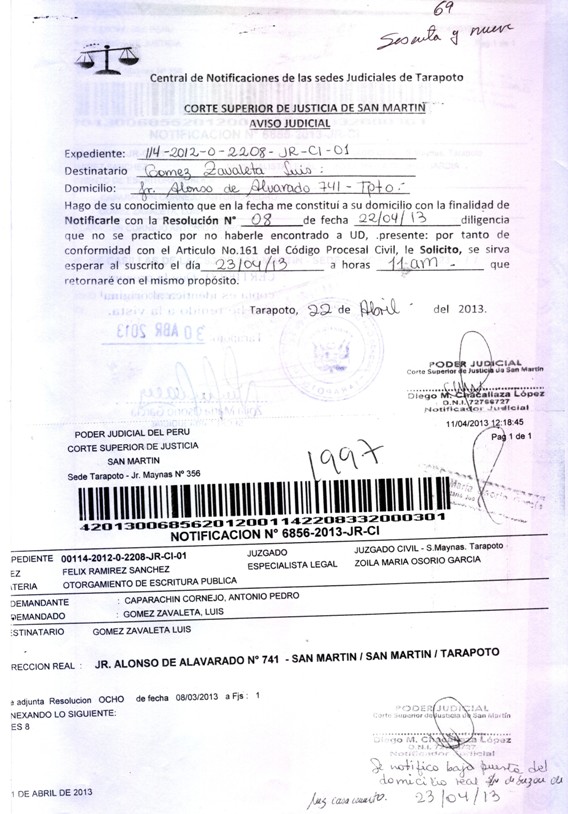 69
Sesenta y nueve
Central de Notificaciones de las sedes Judiciales de Tarapoto
CORTE SUPERIOR DE JUSTICIA DE SAN MARTIN
AVISO JUDICIAL
Expediente: 114-2012-0-2208-JR-CI-01
Destinatario Gomez Zavaleta Luis:
Domicilio: Jr. Alonso de Alvarado 741 - Tpto.
Hago de su conocimiento que en la fecha me constituí a su domicilio con la finalidad de
Notificarle con la Resolución N° 08 de fecha 22/04/13 diligencia
que no se practico por no haberle encontrado a UD, .presente: por tanto de
conformidad con el Articulo No.161 del Código Procesal Civil, le Solicito, se sirva
esperar al suscrito el día 23/04/13 a horas 11 am - que
retornaré con el mismo propósito.
Tarapoto, 22 de Abril del 2013.
30 ABR 2013
PODER JUDICIAL
Corte Superior de Justicia de San Martin
Diego M. Chacaliaza López
D.N.I. 72766727
Notificador Judicial
11/04/2013 12:18:45
Pag 1 de 1
PODER JUDICIAL DEL PERU
CORTE SUPERIOR DE JUSTICIA
SAN MARTIN
Sede Tarapoto - Jr. Maynas Nº 356
1997
420130068562012001142208332000301
NOTIFICACION N° 6856-2013-JR-CI
PEDIENTE 00114-2012-0-2208-JR-CI-01 JUZGADO JUZGADO CIVIL - S.Maynas. Tarapoto
EZ FELIX RAMIREZ SANCHEZ ESPECIALISTA LEGAL ZOILA MARIA OSORIO GARCIA
TERIA OTORGAMIENTO DE ESCRITURA PUBLICA
DEMANDANTE : CAPARACHIN CORNEJO, ANTONIO PEDRO
DEMANDADO : GOMEZ ZAVALETA, LUIS
STINATARIO GOMEZ ZAVALETA LUIS
RECCION REAL : JR. ALONSO DE ALAVARADO N° 741 - SAN MARTIN / SAN MARTIN / TARAPOTO
e adjunta Resolucion OCHO de fecha 08/03/2013 a Fjs : 1
NEXANDO LO SIGUIENTE:
ES 8
PODER JUDICIAL
Corte Superior de Justicia de San Martin
Diego M. Chacaliaza López
D.N.I.
Notificador Judicial
Se notifico bajo puerta del
domicilio real de buzon de
1 DE ABRIL DE 2013
luz casa 23/04/13